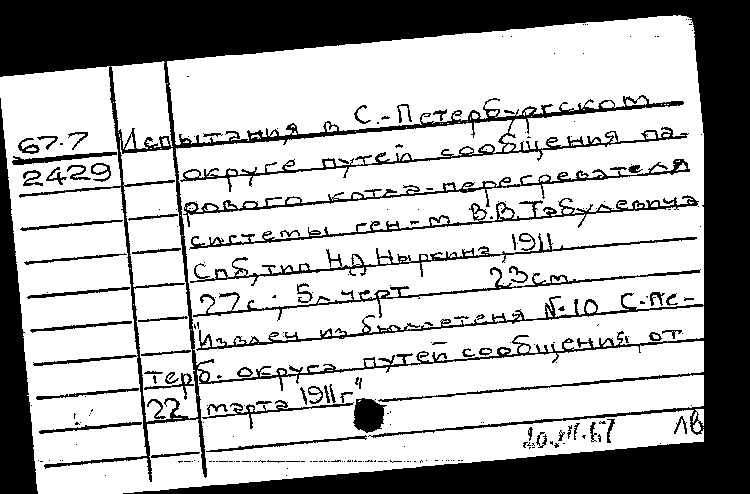 67.7 Испытания в С.-Петербургском
2429 округе путей сообщения па-
рового котла-перегревателя
системы ген-м. В.В. Табулевича
Спб, тип. Н.А. Ныркина, 1911.
27с.; 5л.черт. 23см.
"Извлеч из бюллетеня №10 С.-Пе-
терб. округа путей сообщения, от
22 марта 1911г"
ЛВ